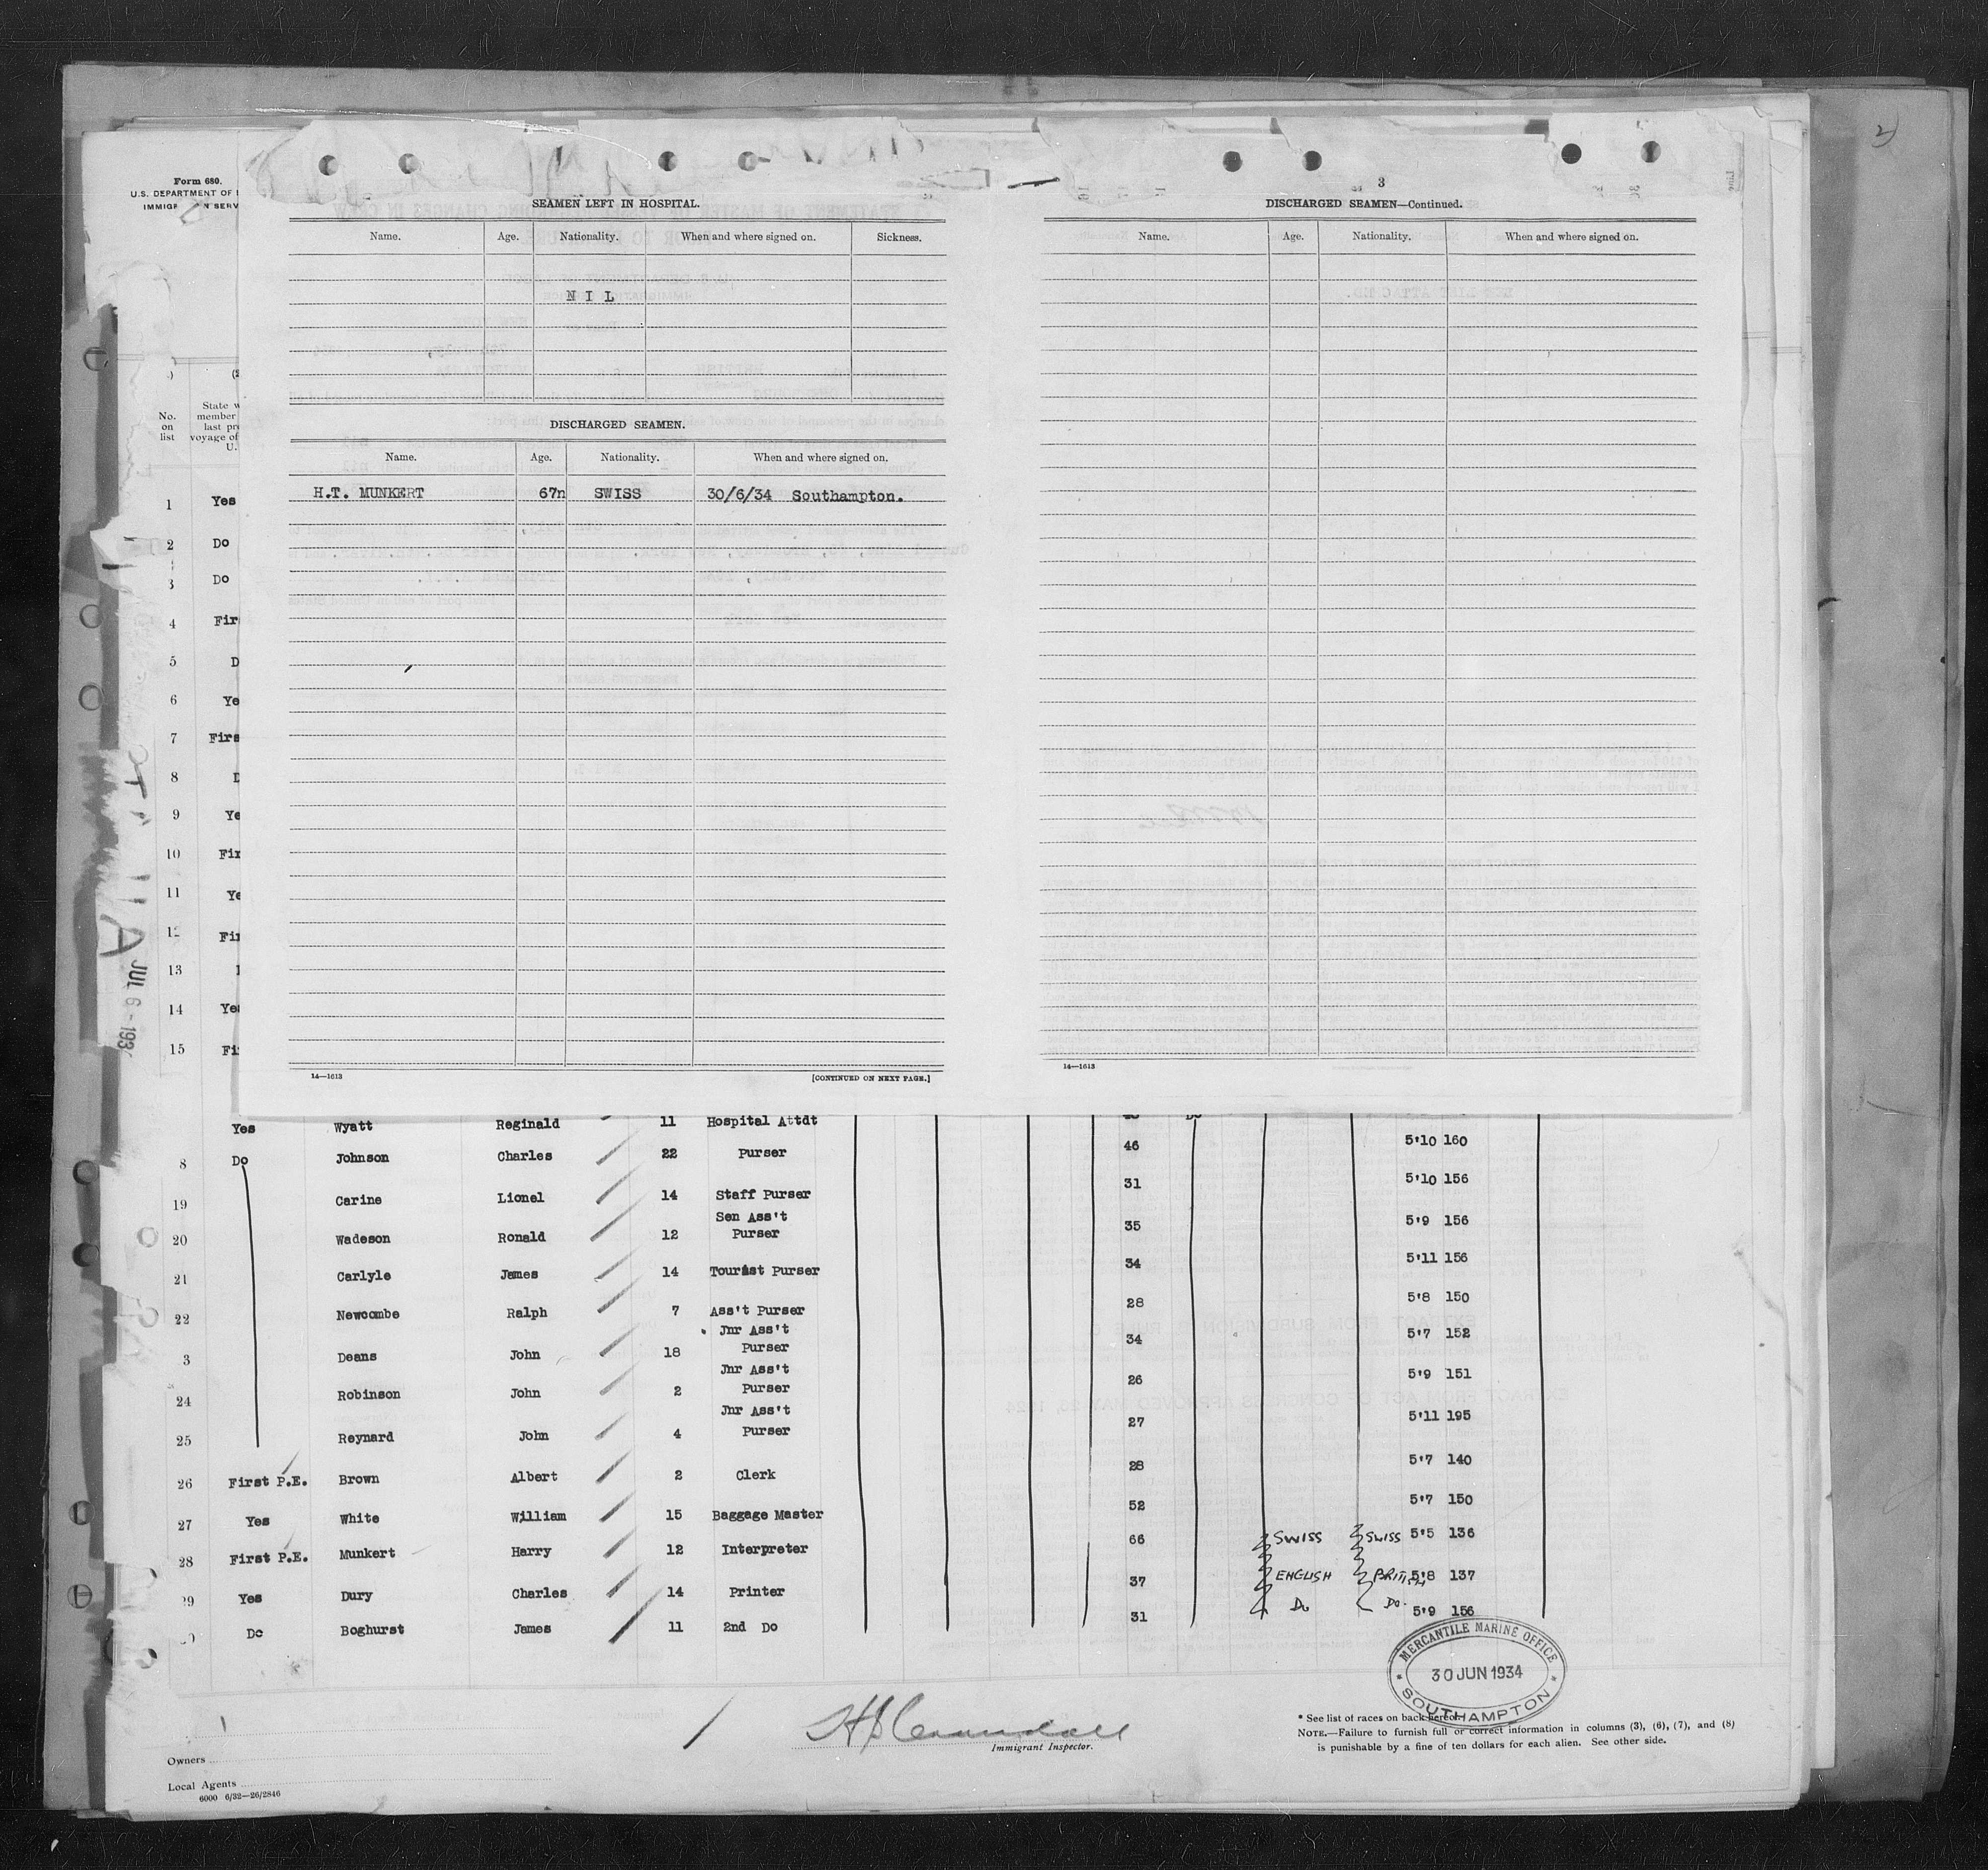 Form 680.
U.S. DEPARTMENT OF
SEAMEN LEFT IN HOSPITAL.
Name. Age. Nationality. When and where signed on. Sickness.
N I L
DISCHARGED SEAMEN.
Name. Age. Nationality. When and where signed on.
H.T. MUNKERT 67n SWISS 30/6/34 Southampton.
14—1613 [CONTINUED ON NEXT PAGE.]
3
DISCHARGED SEAMEN—Continued.
Name. Age. Nationality. When and where signed on.
14—1613
No. on list
State
member
last
voyage of
U.
1 Yes
2 Do
3 Do
4 Fir
5 D
6 Ye
7 Firs
8 D
9 Ye
10 Fir
11 Ye
12 Fir
13
14 Yes
15 Fi
JUL 6 - 193
Yes Wyatt Reginald 11 Hospital Attdt
8 Do Johnson Charles 22 Purser 46 5'10 160
19 Carine Lionel 14 Staff Purser 31 5'10 156
20 Wadeson Ronald 12 Sen Ass't Purser 35 5'9 156
21 Carlyle James 14 Tourist Purser 34 5'11 156
22 Newcombe Ralph 7 Ass't Purser 28 5'8 150
3 Deans John 18 Jnr Ass't Purser 34 5'7 152
24 Robinson John 2 Jnr Ass't Purser 26 5'9 151
25 Reynard John 4 Jnr Ass't Purser 27 5'11 195
26 First P.E. Brown Albert 2 Clerk 28 5'7 140
27 Yes White William 15 Baggage Master 52 5'7 150
28 First P.E. Munkert Harry 12 Interpreter 66 SWISS SWISS 5'5 136
29 Yes Dury Charles 14 Printer 37 ENGLISH BRITISH 5'8 137
Do Boghurst James 11 2nd Do 31 Do Do. 5'9 156
MERCANTILE MARINE OFFICE
30 JUN 1934
SOUTHAMPTON
Immigrant Inspector.
* See list of races on back hereof.
NOTE.—Failure to furnish full or correct information in columns (3), (6), (7), and (8)
is punishable by a fine of ten dollars for each alien. See other side.
Owners
Local Agents
6000 6/32—26/2846